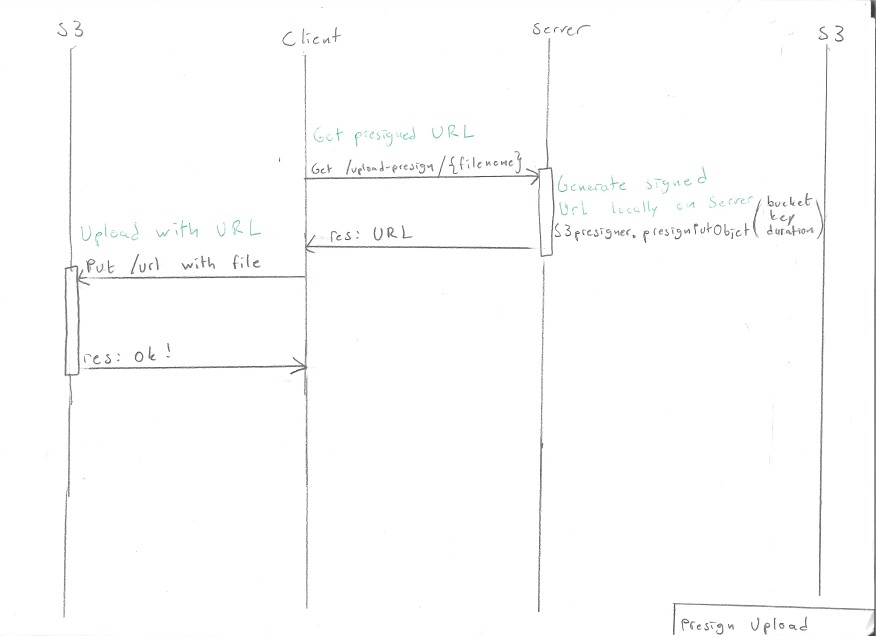 S3
Client
Server
S3
Get presigned URL
Get /upload-presign/{filename}
Generate signed
Url locally on Server
S3presigner.presignPutObjct( bucket
key
duration)
res: URL
Upload with URL
Put /url with file
res: Ok!
Presign Upload